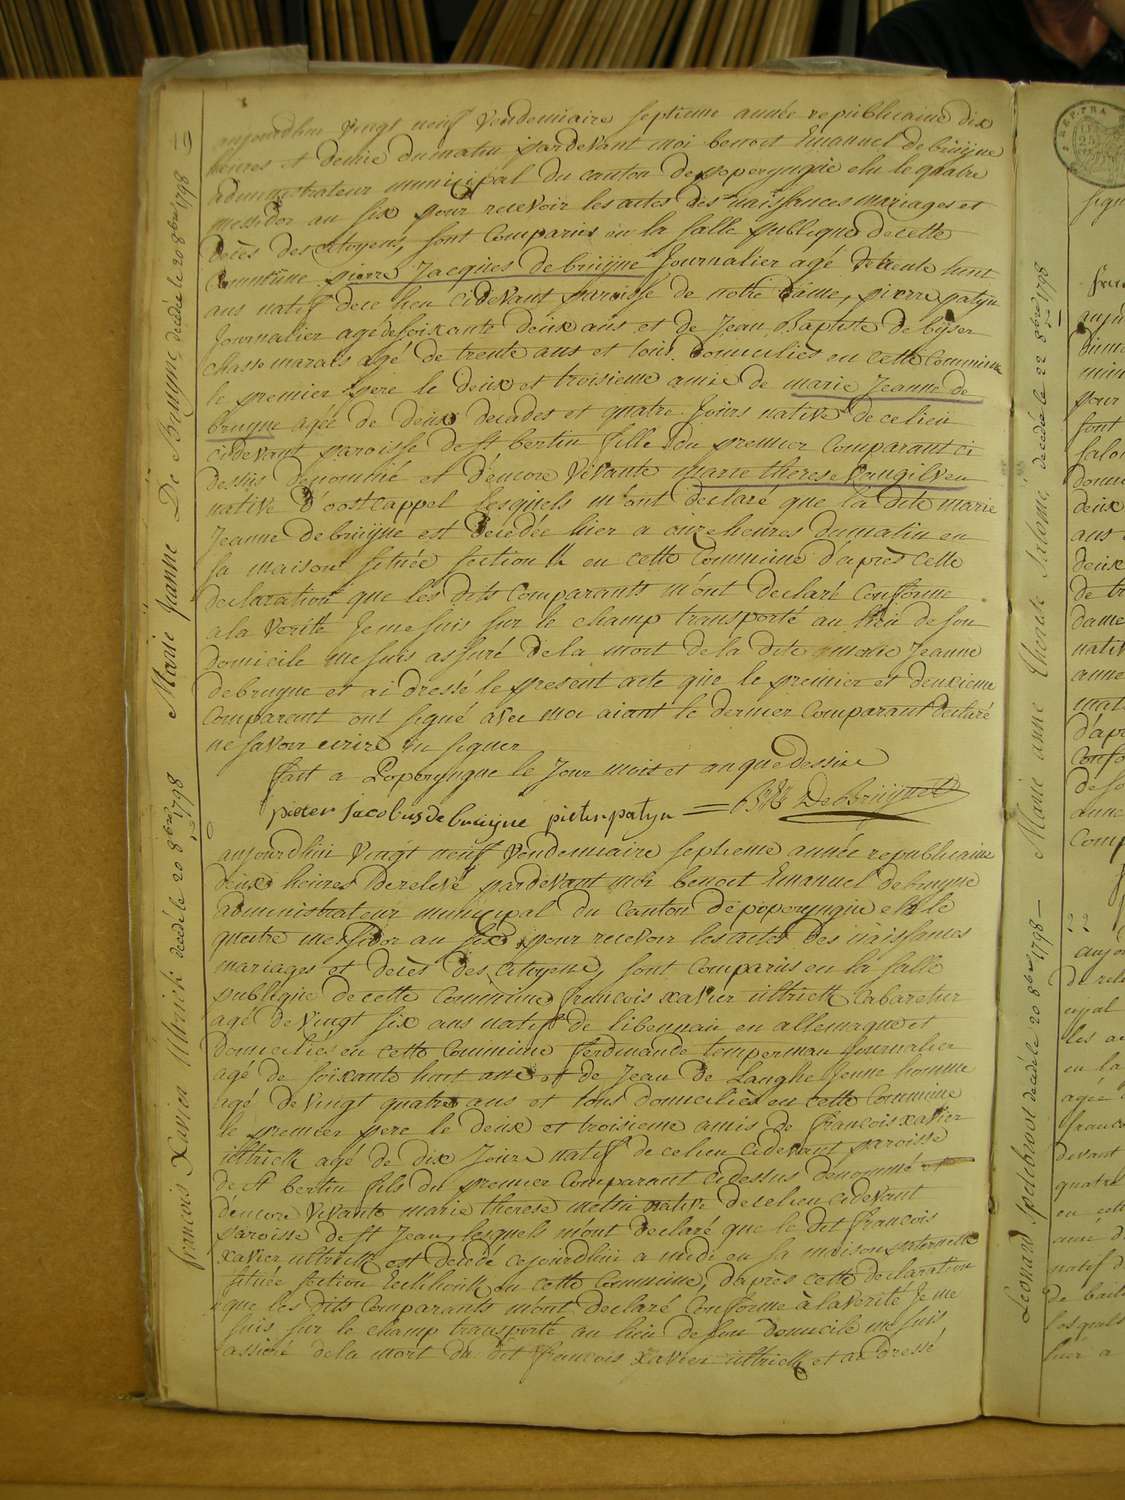 aujourdhui vingt neuf Vendemiaire septieme année republicaine dix
heures et demie du matin pardevant moi benoit Emanuel debruÿne
administrateur municipal du canton de poperyngue elu le quatre
messidor an six pour recevoir les actes des naissances mariages et
decès des citoyens, sont comparus en la salle publique de cette
commune pierre Jacques de bruÿne Journalier agé de trente huit
ans natif de ce lieu cidevant paroisse de notre dame, pierre patyn
Journalier agé de soixante deux ans et de Jean Baptiste de byser
chasse marais agé de trente ans et tous domiciliés en cette commune
le premier pere le deux et troisieme amis de marie Jeanne de
bruyne agée de deux decades et quatre Jours native de ce lieu
cidevant paroisse de St bertin fille du premier comparant ci
dessus denommé et d'encore vivante marie therese vangilven
native d'oostcappel lesquels m'ont declaré que la dite marie
Jeanne debruÿne est decedée hier a onze heures du matin en
sa maison située section h en cette commune d'après cette
declaration que les dits comparants m'ont declaré conforme
a la verité Je me suis sur le champ transporté au lieu de son
domicile me suis assuré de la mort de la dite marie Jeanne
debruyne et ai dressé le present acte que le premier et deuxieme
comparant ont signé avec moi aiant le dernier comparant declaré
ne savoir ecrire ni signer
fait a Poperyngue le Jour mois et an que dessus
pieter jacobus de bruijne pieter patyn = DeBruÿne
aujourdhui vingt neuf Vendemiaire septieme année republicaine
deux heures de relevé pardevant moi benoit Emanuel debruyne
administrateur municipal du canton de poperyngue elu le
quatre messidor an six pour recevoir les actes des naissances
mariages et decès des citoyens, sont comparus en la salle
publique de cette commune francois xavier ultrich cabaretier
agé de vingt six ans natif de libennau en allemagne et
domiciliés en cette commune ferdinande temperman Journalier
agé de soixante huit ans et de Jean de Langhe Jeune homme
agé de vingt quatre ans et tous domiciliés en cette commune
le premier pere le deux et troisieme amis de francois xavier
ultrich agé de dix Jours natif de ce lieu cidevant paroisse
de St bertin fils du premier comparant cidessus denommé et
d'encore vivante marie therese native de ce lieu cidevant
paroisse de St Jean, lesquels m'ont declaré que le dit francois
xavier ultrich est decedé cejourdhui a midi en sa maison paternelle
située section en cette commune, d'après cette declaration
que les dits comparants m'ont declaré conforme à la verité Je me
suis sur le champ transporté au lieu de son domicile me suis
assuré de la mort du dit francois xavier ultrich et ai dressé
Marie Jeanne De Bruyne, decedée le 20 8bre 1798
francois Xavier Ultrich decedé le 20 8bre 1798
Marie anne Therese Salomé, decedée le 22 8bre 1798
Léonard Spetebroot decedé le 20 8bre 1798